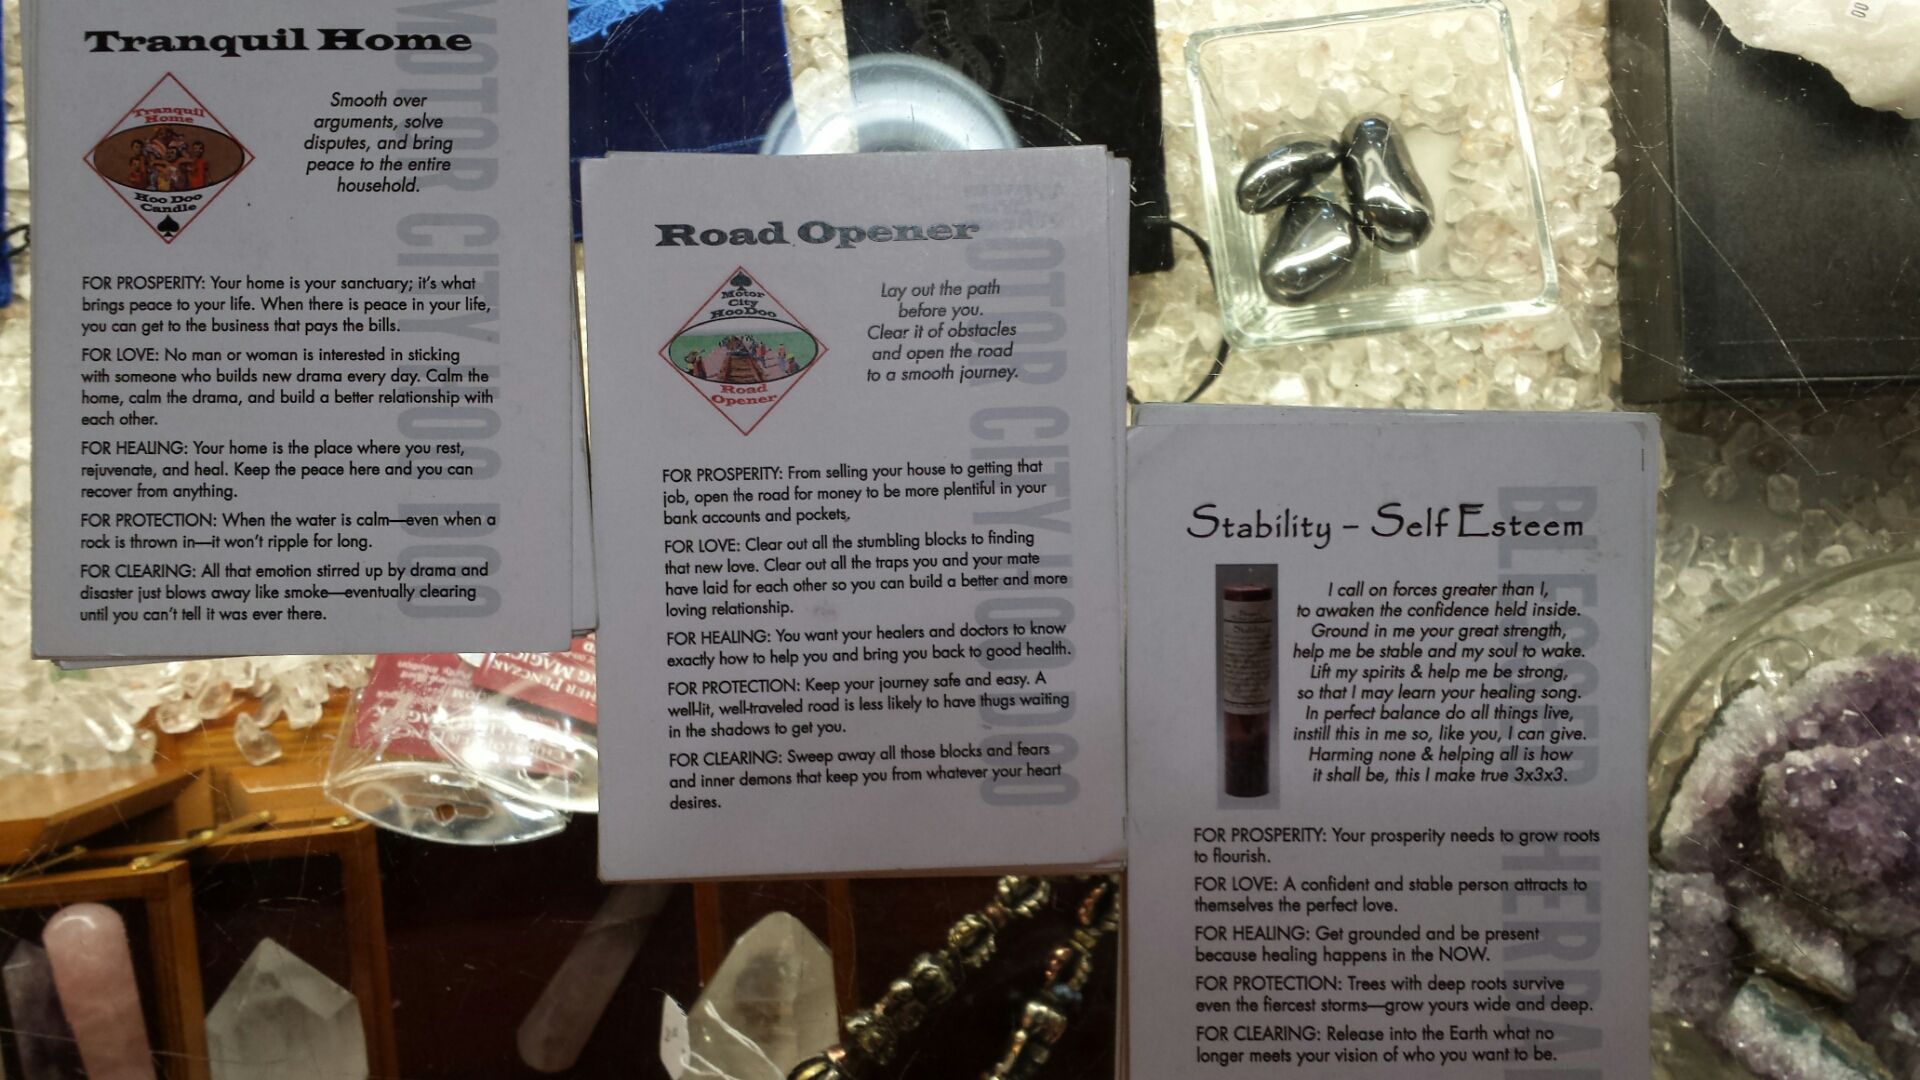 Tranquil Home
Tranquil
Home
Hoo Doo
Candle
Smooth over
arguments, solve
disputes, and bring
peace to the entire
household.
FOR PROSPERITY: Your home is your sanctuary; it's what
brings peace to your life. When there is peace in your life,
you can get to the business that pays the bills.
FOR LOVE: No man or woman is interested in sticking
with someone who builds new drama every day. Calm the
home, calm the drama, and build a better relationship with
each other.
FOR HEALING: Your home is the place where you rest,
rejuvenate, and heal. Keep the peace here and you can
recover from anything.
FOR PROTECTION: When the water is calm—even when a
rock is thrown in—it won't ripple for long.
FOR CLEARING: All that emotion stirred up by drama and
disaster just blows away like smoke—eventually clearing
until you can't tell it was ever there.
MOTOR CITY HOO DOO
Road Opener
Motor
City
HooDoo
Road
Opener
Lay out the path
before you.
Clear it of obstacles
and open the road
to a smooth journey.
FOR PROSPERITY: From selling your house to getting that
job, open the road for money to be more plentiful in your
bank accounts and pockets.
FOR LOVE: Clear out all the stumbling blocks to finding
that new love. Clear out all the traps you and your mate
have laid for each other so you can build a better and more
loving relationship.
FOR HEALING: You want your healers and doctors to know
exactly how to help you and bring you back to good health.
FOR PROTECTION: Keep your journey safe and easy. A
well-lit, well-traveled road is less likely to have thugs waiting
in the shadows to get you.
FOR CLEARING: Sweep away all those blocks and fears
and inner demons that keep you from whatever your heart
desires.
MOTOR CITY HOO DOO
Stability – Self Esteem
Stability
I call on forces greater than I,
to awaken the confidence held inside.
Ground in me your great strength,
help me be stable and my soul to wake.
Lift my spirits & help me be strong,
so that I may learn your healing song.
In perfect balance do all things live,
instill this in me so, like you, I can give.
Harming none & helping all is how
it shall be, this I make true 3x3x3.
FOR PROSPERITY: Your prosperity needs to grow roots
to flourish.
FOR LOVE: A confident and stable person attracts to
themselves the perfect love.
FOR HEALING: Get grounded and be present
because healing happens in the NOW.
FOR PROTECTION: Trees with deep roots survive
even the fiercest storms—grow yours wide and deep.
FOR CLEARING: Release into the Earth what no
longer meets your vision of who you want to be.
BLESSED HERBAL
MAGIC